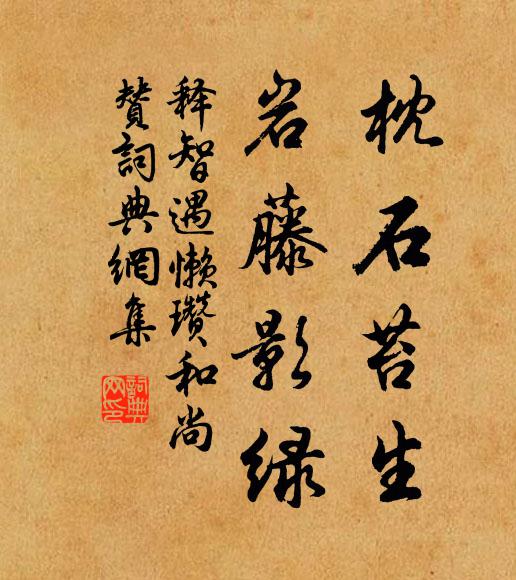 枕石苔生
岩藤影绿
释智遇懒瓒和尚
赞詞典網集
詞典
网印